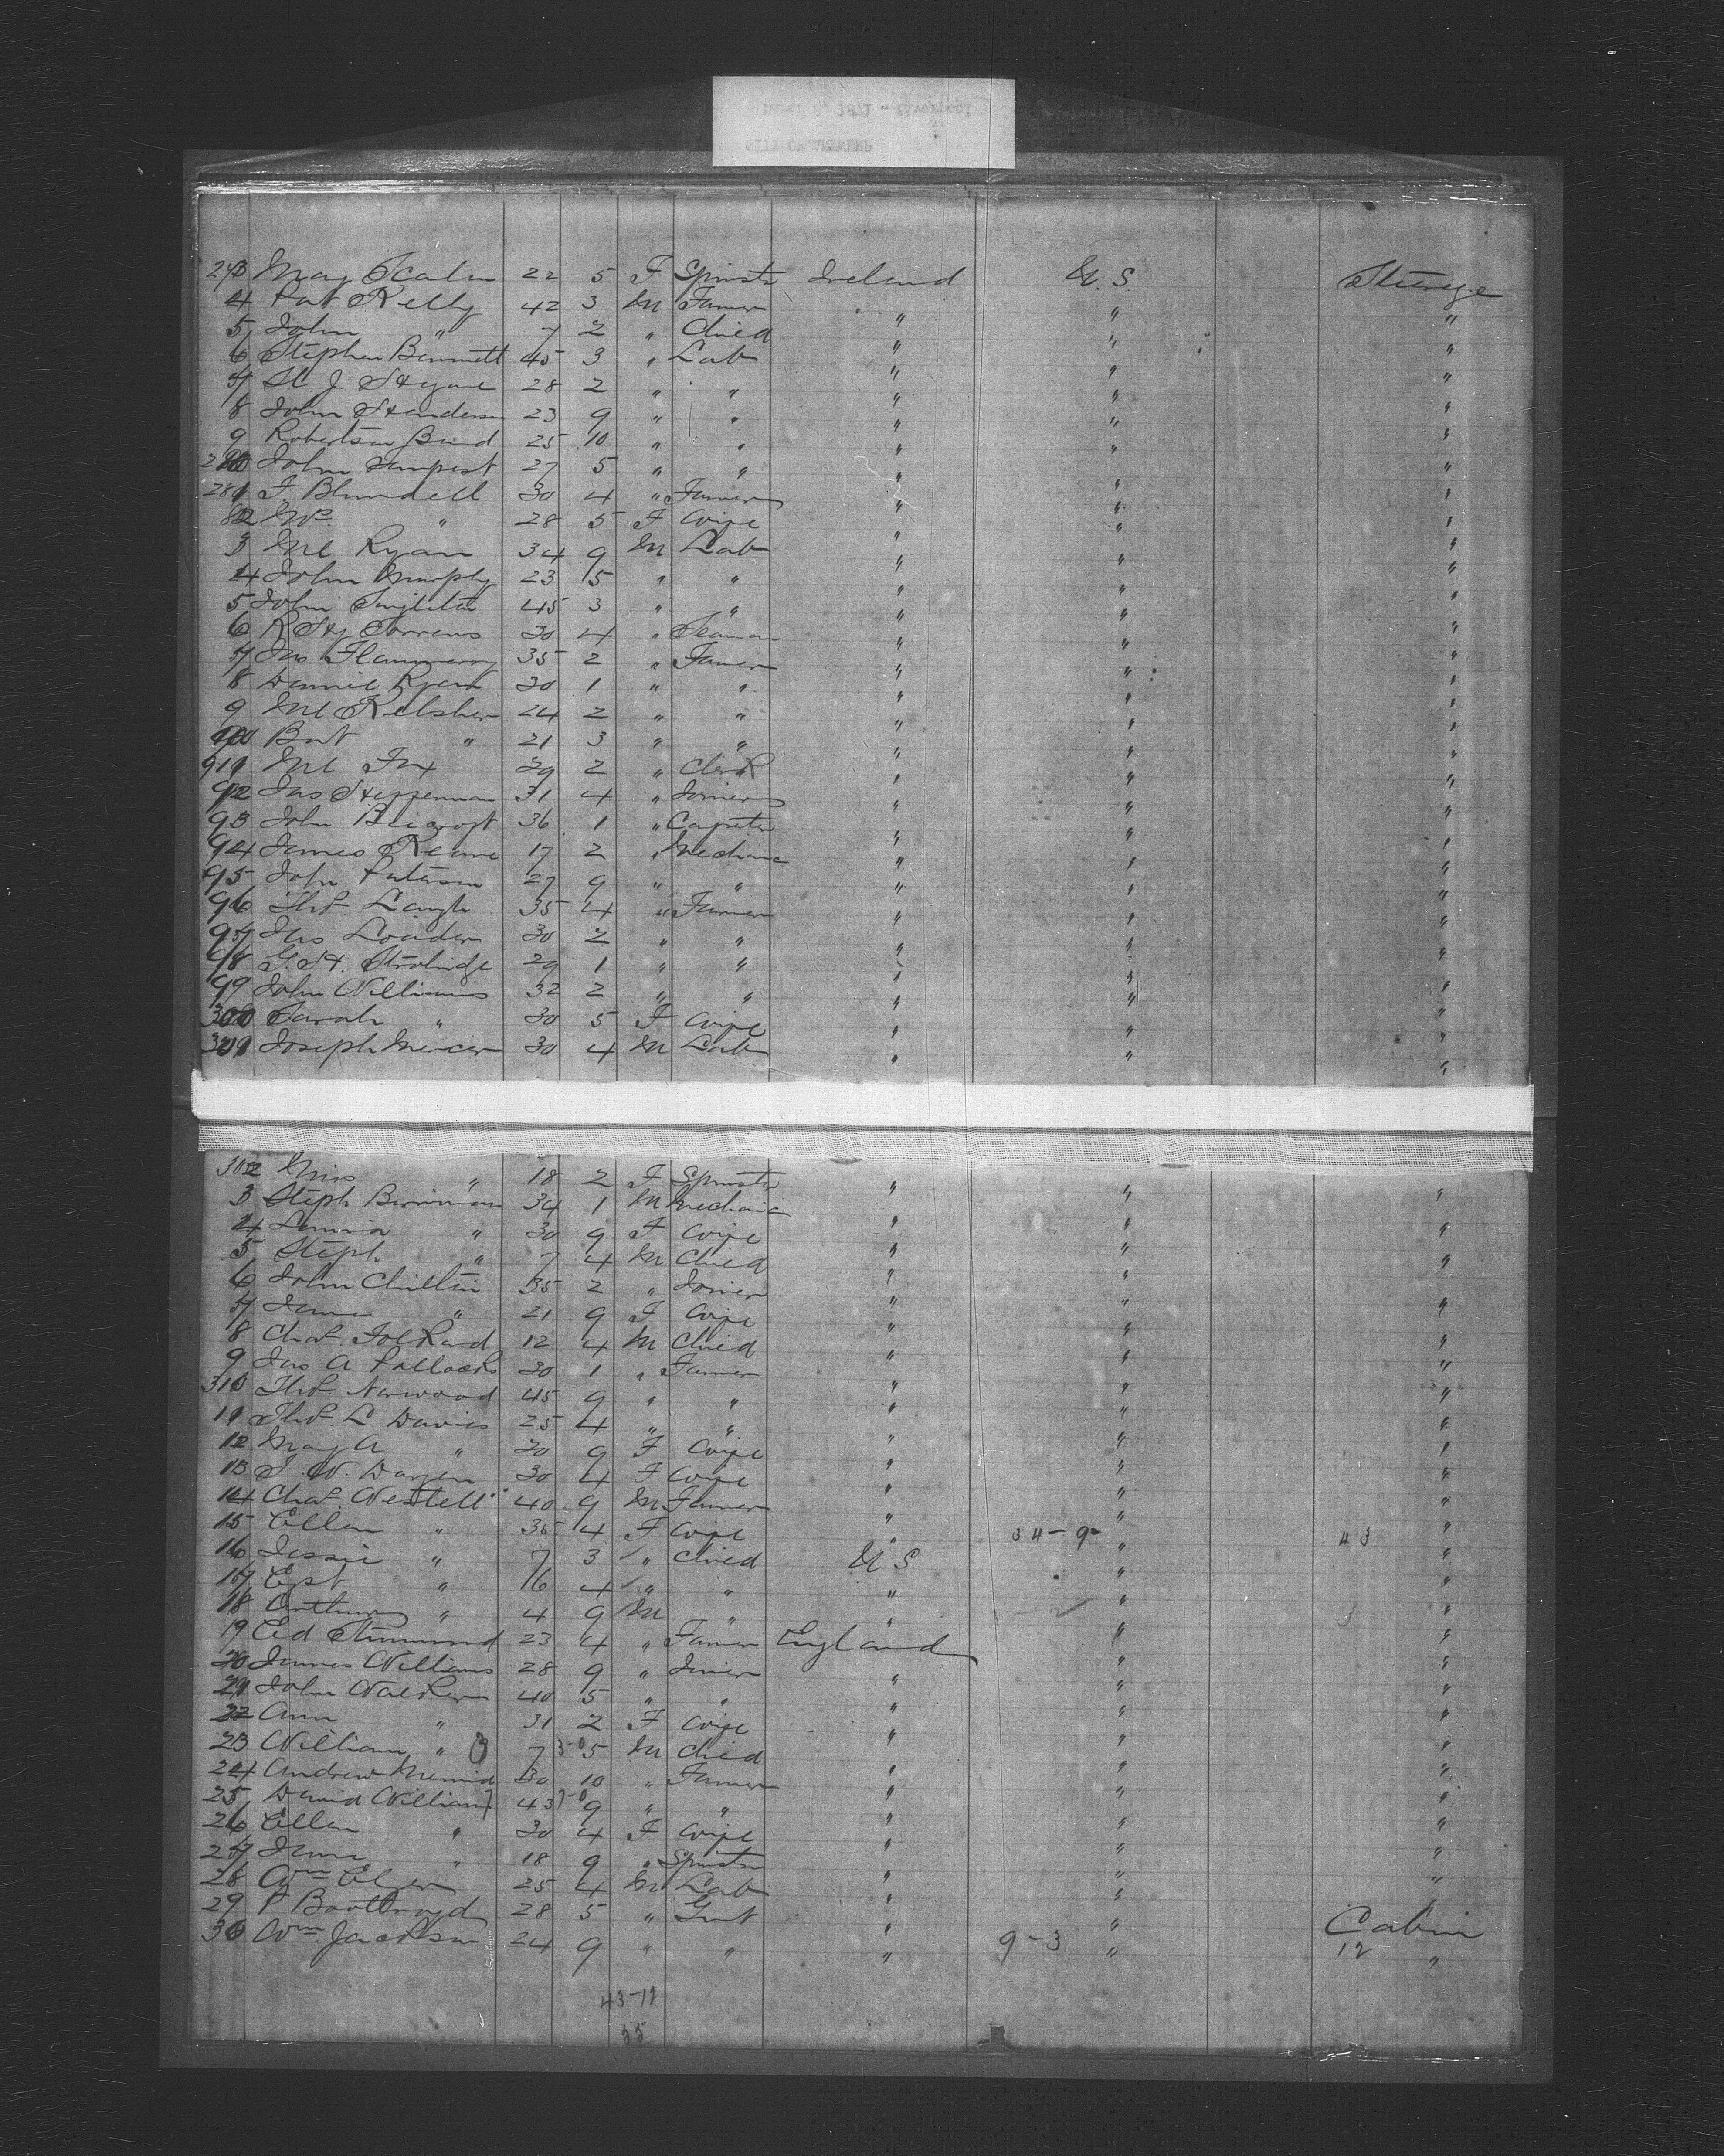 273 Mary Scalen 22 5 F Spinstr Ireland U.S. Steerage
4 Pat Kelly 42 3 M Farmer " " "
5 John " 7 2 " Child " " "
6 Stephen Bennett 45 3 " Lab " " "
7 28 2 " " " " "
8 John Henderson 23 9 " " " " "
9 Robertson 25 10 " " " " "
280 John Tempest 27 5 " " " " "
281 F. Blundell 30 4 " Farmer " " "
82 Mrs " 28 5 F Wife " " "
3 Ml Ryan 34 9 M Lab " " "
4 John Murphy 23 5 " " " " "
5 John Singleton 45 3 " " " " "
6 R Hy Torrens 30 4 " Seaman " " "
7 Jas Flannerry 35 2 " Farmer " " "
8 Daniel Ryan 30 1 " " " " "
9 Ml Kelsher 24 2 " " " " "
Bart " 21 3 " " " " "
Ml Fox 29 2 " Clerk " " "
92 Jas Heffernan 31 4 " Joiner " " "
93 John 36 1 " " " "
94 James Keane 17 2 " Mechanic " " "
95 John Paterson 27 9 " " " " "
96 Thos 35 4 " Farmer " " "
97 Jas Louder 30 2 " " " " "
98 G. H. Strobridge 29 1 " " " " "
99 John Williams 32 2 " " " " "
300 Sarah " 30 5 F Wife " " "
301 Joseph Mercer 30 4 M Lab " " "
302 Miss " 18 2 F Spinstr " " "
3 Steph Berriman 34 1 M Mechanic " " "
4 " 30 9 F Wife " " "
5 Steph " 7 4 M Child " " "
6 John Chilton 35 2 " Joiner " " "
7 Jane " 21 9 F Wife " " "
8 Chas Folkard 12 4 M Child " " "
9 Jas A Pollock 30 1 " Farmer " " "
310 Thos Norwood 45 9 " " " " "
11 Thos L Davies 25 4 " " " " "
12 Mary A " 20 9 F Wife " " "
13 30 4 F Wife " " "
14 Chas Westell 40 9 M Farmer " " "
15 Ellen " 35 4 F Wife " 34-9- " 43 "
16 Jessie " 7 3 " Child U S " "
17 " 6 4 " " " " "
18 Arthur " 4 9 M " " " "
19 Ed 23 4 " Farmer England " "
20 James Williams 28 9 " " " "
21 John Walker 40 5 " " " " "
22 Ann " 31 2 F Wife " " "
23 William " 7 3-0 5 M Child " " "
24 Andrew 30 10 " Farmer " " "
25 David William 43 7-0 9 " " " " "
26 Ellen " 30 4 F Wife " " "
27 Jane " 18 9 " Spinstr " " "
28 Wm 25 4 M Lab " " "
29 P Boothroyd 28 5 " Gent " " Cabin
30 Wm Jackson 24 9 " " " 9-3 " 12 "
43-12
55